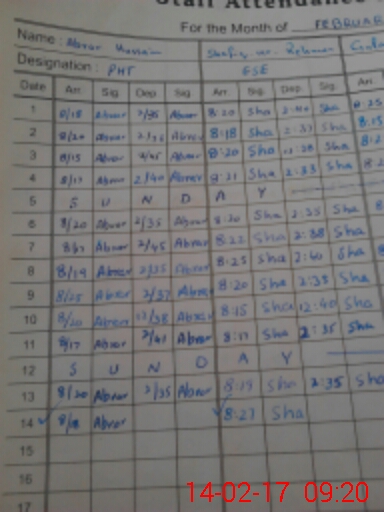 Staff Attendance
For the Month of FEBRUAR
Name: Abrar Hussain
Designation: PHT ESE
Date Arr. Sig. Dep. Sig. Arr. Sig. Dep. Sig. Arr.
1 8/18 Abrar Abrar 8:20 Sha Sha
2 8/20 Abrar Abrar 8:18 Sha 2:37 Sha
3 8/15 Abrar Abrar 8:20 Sha Sha
4 8/17 Abrar 2/40 Abrar 8:21 Sha 2:33 Sha
5 S U N D A Y
6 8/20 Abrar 2/35 Abrar 8:20 Sha 2:35 Sha
7 Abrar 2/45 Abrar Sha 2:38 Sha
8 8/19 Abrar 2/35 Abrar 8:25 Sha 2:40 Sha
9 8/25 Abrar 2/37 Abrar 8:20 Sha 2:35 Sha
10 8/20 Abrar 12/38 Abrar 8:15 Sha 12:40 Sha
11 8/17 Abrar 2/41 Abrar 8:17 Sha 2:35 Sha
12 S U N D A Y
13 8/20 Abrar 2/35 Abrar 8:19 Sha 2:35 Sha
14 8/18 Abrar 8:27 Sha
15
16
17
14-02-17 09:20